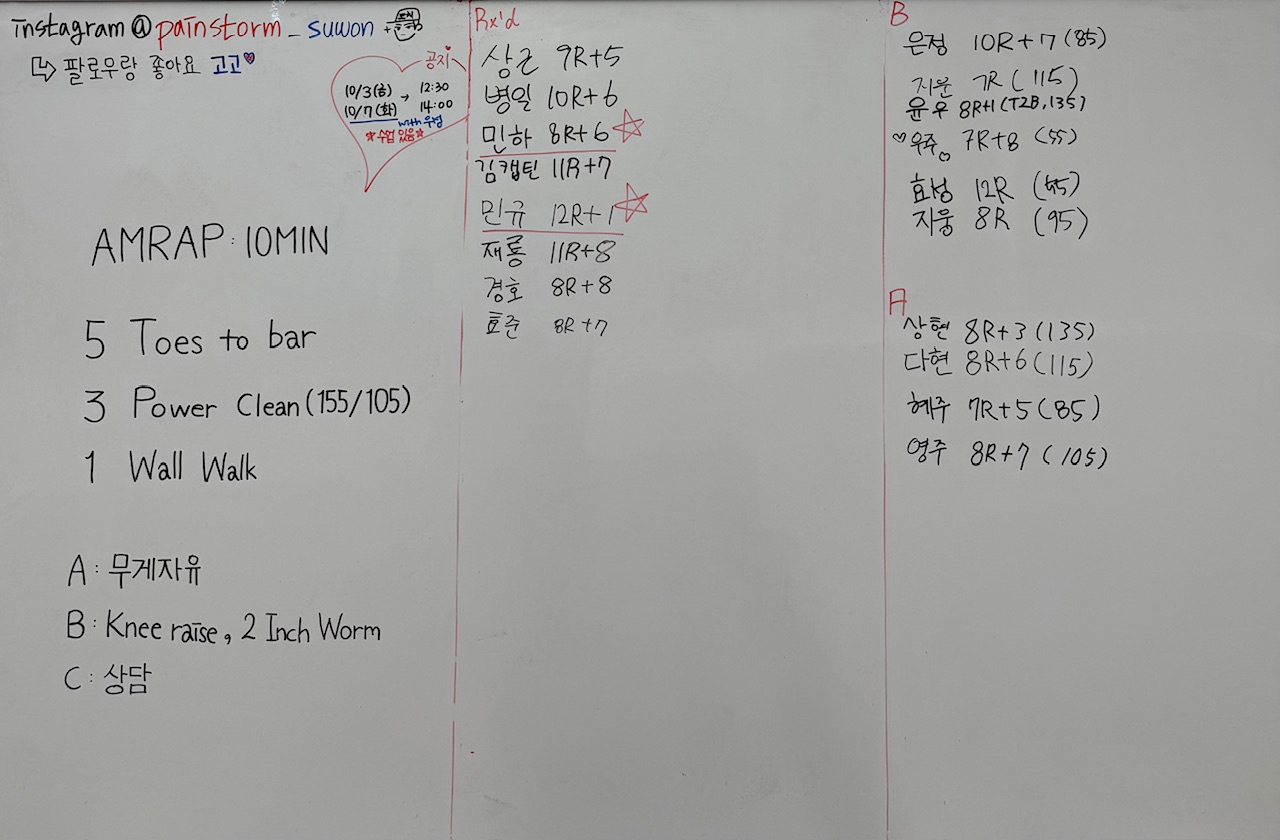 instagram @painstorm_suwon
팔로우랑 좋아요 고고♥
공지♥
10/3(금) → 12:30
10/7(화) 14:00
with우성
☆수업 있음☆
AMRAP: 10MIN
5 Toes to bar
3 Power Clean (155/105)
1 Wall Walk
A: 무게자유
B: Knee raise, 2 Inch Worm
C: 상담
Rx'd
상근 9R+5
병일 10R+6
민하 8R+6 ☆
김캡틴 11R+7
민규 12R+1 ☆
재룡 11R+8
경호 8R+8
효준 8R+7
B
은정 10R+7 (85)
지운 7R (115)
윤우 8R+1 (T2B, 135)
♡우주 7R+8 (55)
효성 12R
지웅 8R (95)
A
상현 8R+3 (135)
다현 8R+6 (115)
혜주 7R+5 (85)
영주 8R+7 (105)